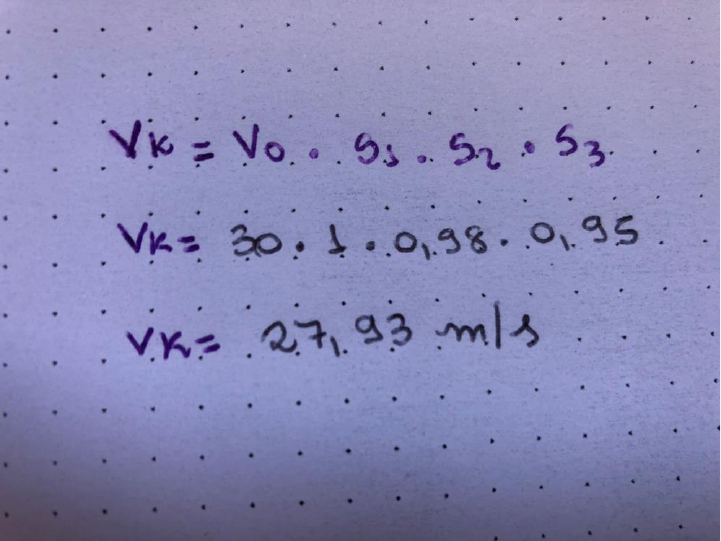 VK = V0 . S1 . S2 . S3
VK = 30 . 1 . 0,98 . 0,95
VK = 27,93 m/s